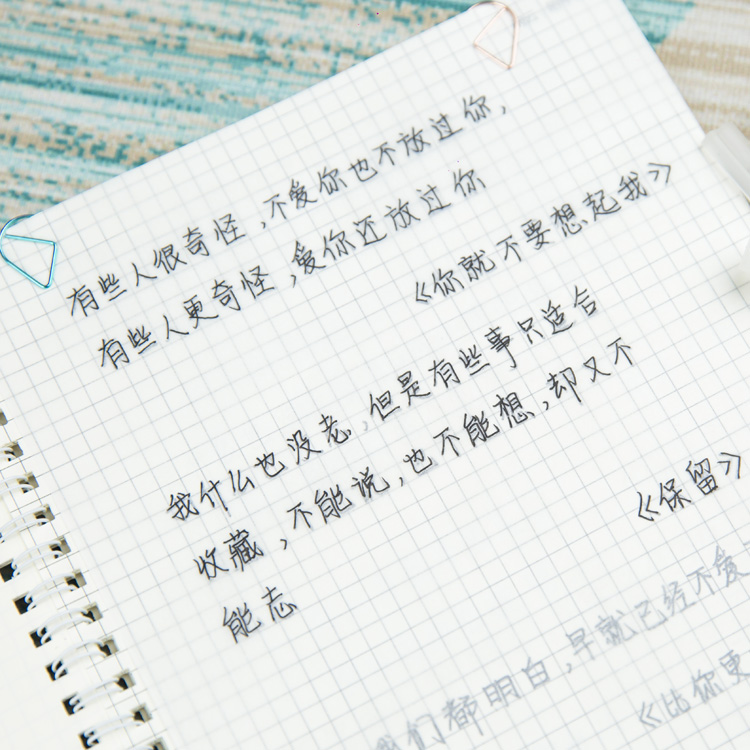 有些人很奇怪,不爱你也不放过你,
有些人更奇怪,爱你还放过你
《你就不要想起我》
我什么也没忘,但是有些事只适合
收藏,不能说,也不能想,却又不
能忘
《保留》
们都明白,早就已经不爱
《比你更